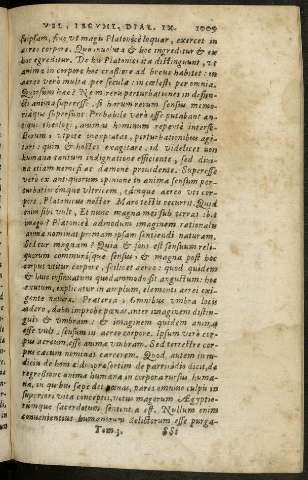 VEL. IECVMI. DIAL. IX. 1009
ſuipſam, ſiuo vt magis Platonicè loquar, exercet in
aereo corpore. Qua nuoua & hoc ingreditur & ex
hoc egreditur. De his Platonici ita diſtinguunt, vt
anima in corpore hoc craßiore ad breue habitet: in
aereo verò multa per ſecula: in cæleſti per omnia.
Quorſum hæc? Nem rerum perturbationes in defun-
cti anima ſupereſſe, ſi harum rerum ſenſus memo-
riaque ſuperſunt. Probabile verò eſſe putabant an-
tiqui theologi, animas hominum repente interfe-
ctorum vtpote inexpiatas, perturbationibus agi-
tari: quin & hoſtes exagitare, id videlicet non
humana tantum indignatione efficiente, ſed diui-
na etiam nemeſi ac dæmone prouidente. Supereſſe
verò ex antiquorum opinione in anima ſenſum per-
turbationemque vltricem, eamque aereo vti cor-
pore, Platonicus noſter Maro teſtis occurrit. Quid
enim ſibi vult, Et nunc magna mei ſub terras ibit
imago? Platonici admodum imaginem rationalis
animæ nominant primam ipſam ſentiendi naturam.
Sed cur magnam? Quia & ipſi eſt ſenſuum reli-
quorum communiſque ſenſus; & magna poſt hoc
corpus vtitur corpore, ſcilicet aereo: quod quidem
& huic ordinatum quodammodo ſit auguſtum: hoc
exutum, explicatur in amplum, elementi aerei exi-
gente natura. Præterea; Omnibus vmbra locis
adero, dabis improbe pœnas, inter imaginem diſtin-
guis & vmbram: & imaginem quidem animæ
eſſe vult, ſenſum in aereo corpore. Ipſum verò cor-
pus aereum, eſſe animæ vmbram. Sed terreſtre cor-
pus cæcum nominat carcerem. Quod autem in iu-
dicio de homicidio
regreßione animæ humanæ in corpora rurſus huma-
na, in quibus ſæpe det pœnas, pares omnino culpis in
ſuperiore vita conceptis, vetus magorum Ægyptio-
rumque ſacerdotum ſententia eſt. Nullum enim
conuenientius humanorum delictorum eſſe purga-
Tom. 3. SSſ